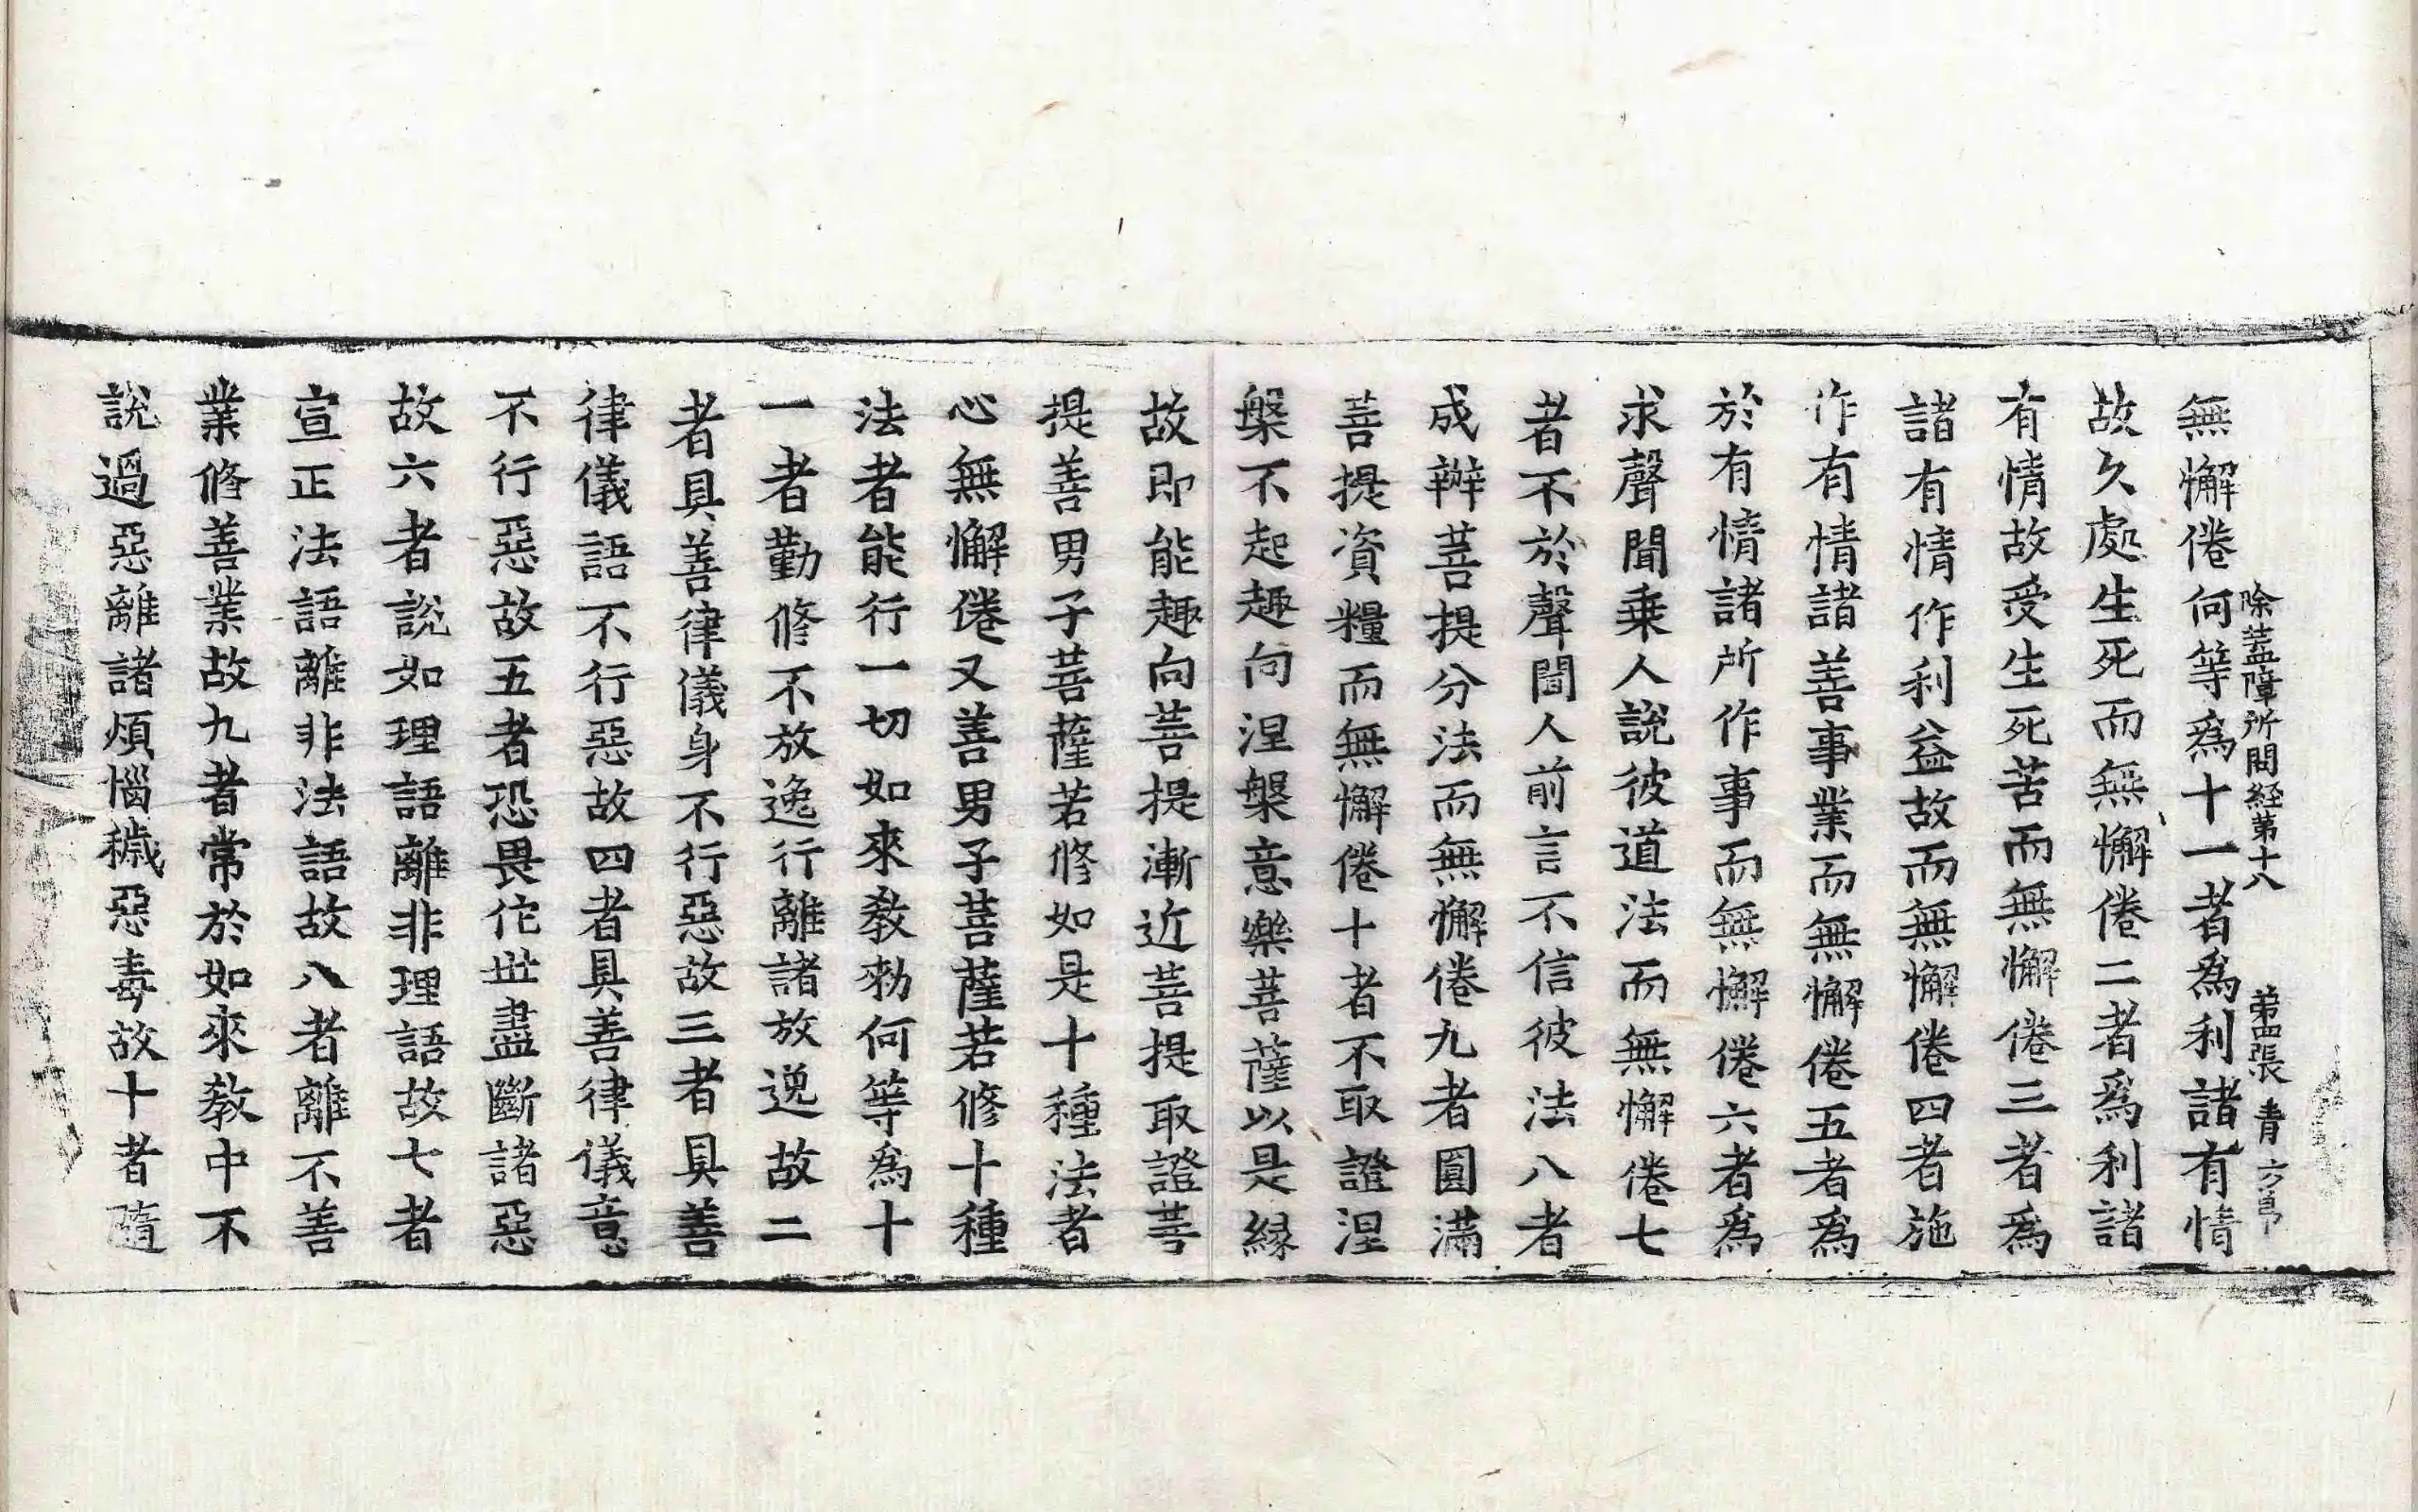 除蓋障所問経第十八 第四張 青
無懈倦何等為十一者為利諸有情
故久處生死而無懈倦二者為利諸
有情故受生死苦而無懈倦三者為
諸有情作利益故而無懈倦四者施
作有情諸善事業而無懈倦五者為
於有情諸所作事而無懈倦六者為
求聲聞乗人說彼道法而無懈倦七
者不於聲聞人前言不信彼法八者
成辦菩提分法而無懈倦九者圓滿
菩提資糧而無懈倦十者不取證涅
槃不起趣向涅槃意樂菩薩以是縁
故即能趣向菩提漸近菩提取證菩
提善男子菩薩若修如是十種法者
心無懈倦又善男子菩薩若修十種
法者能行一切如來教勑何等為十
一者勤修不放逸行離諸放逸故二
者具善律儀身不行惡故三者具善
律儀語不行惡故四者具善律儀意
不行惡故五者恐畏佗世盡斷諸惡
故六者說如理語離非理語故七者
宣正法語離非法語故八者離不善
業修善業故九者常於如來教中不
說過惡離諸煩惱穢惡毒故十者隨